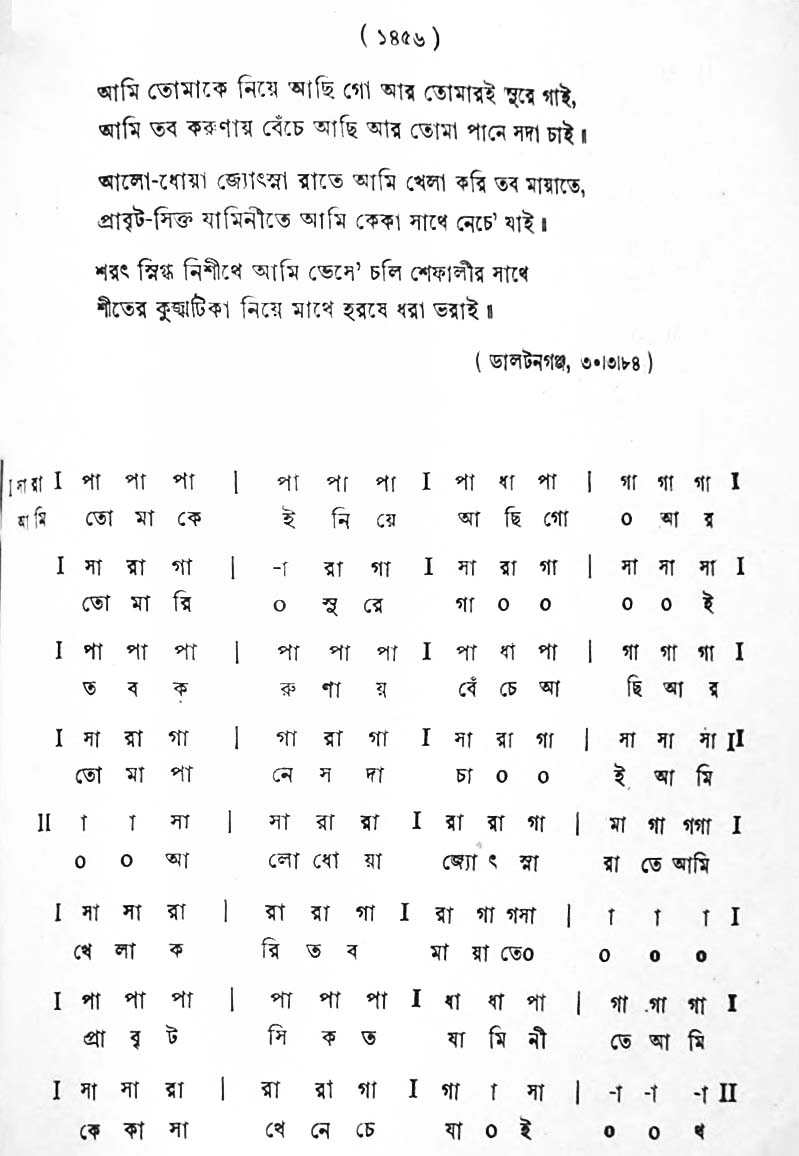 ( ১৪৫৬ )
আমি তোমাকে নিয়ে আছি গো আর তোমারই সুরে গাই,
আমি তব করুণায় বেঁচে আছি আর তোমা পানে সদা চাই॥
আলো-ধোয়া জ্যোৎস্না রাতে আমি খেলা করি তব মায়াতে,
প্রাবৃট-সিক্ত যামিনীতে আমি কেকা সাথে নেচে' যাই॥
শরৎ স্নিগ্ধ নিশীথে আমি ভেসে' চলি শেফালীর সাথে
শীতের কুজ্ঝটিকা নিয়ে মাথে হরষে ধরা ভরাই॥
( ডালটনগঞ্জ, ৩০।৩।৮৪ )
| সারা I পা পা পা | পা পা পা I পা ধা পা | গা গা গা I
আমি তো মা কে ই নি য়ে আ ছি গো ০ আ র
I সা রা গা | -া রা গা I সা রা গা | সা সা সা I
তো মা রি ০ সু রে গা ০ ০ ০ ০ ই
I পা পা পা | পা পা পা I পা ধা পা | গা গা গা I
ত ব ক রু ণা য় বেঁ চে আ ছি আ র
I সা রা গা | গা রা গা I সা রা গা | সা সা সা II
তো মা পা নে স দা চা ০ ০ ই আ মি
II া া সা | সা রা রা I রা রা গা | মা গা গগা I
০ ০ আ লো ধো য়া জ্যো ৎ স্না রা তে আমি
I সা সা রা | রা রা গা I রা গা গসা | া া া I
খে লা ক রি ত ব মা য়া তে০ ০ ০ ০
I পা পা পা | পা পা পা I ধা ধা পা | গা গা গা I
প্রা বৃ ট সি ক ত যা মি নী তে আ মি
I সা সা রা | রা রা গা I গা া সা | -া -া -া II
কে কা সা থে নে চে যা ০ ই ০ ০